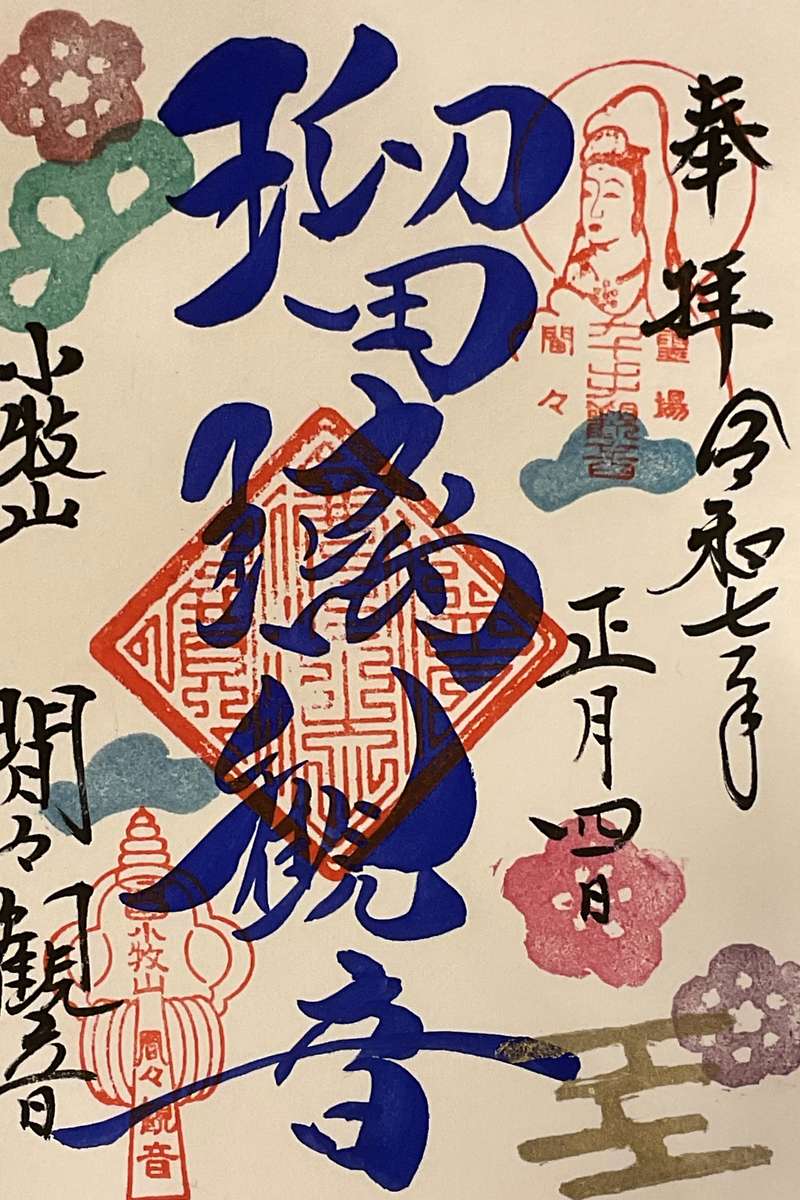 奉拝
令和七年
正月四日
靈場
千手觀音
間々
瑠璃観音
小牧山
間々観音
小牧山
間々観音